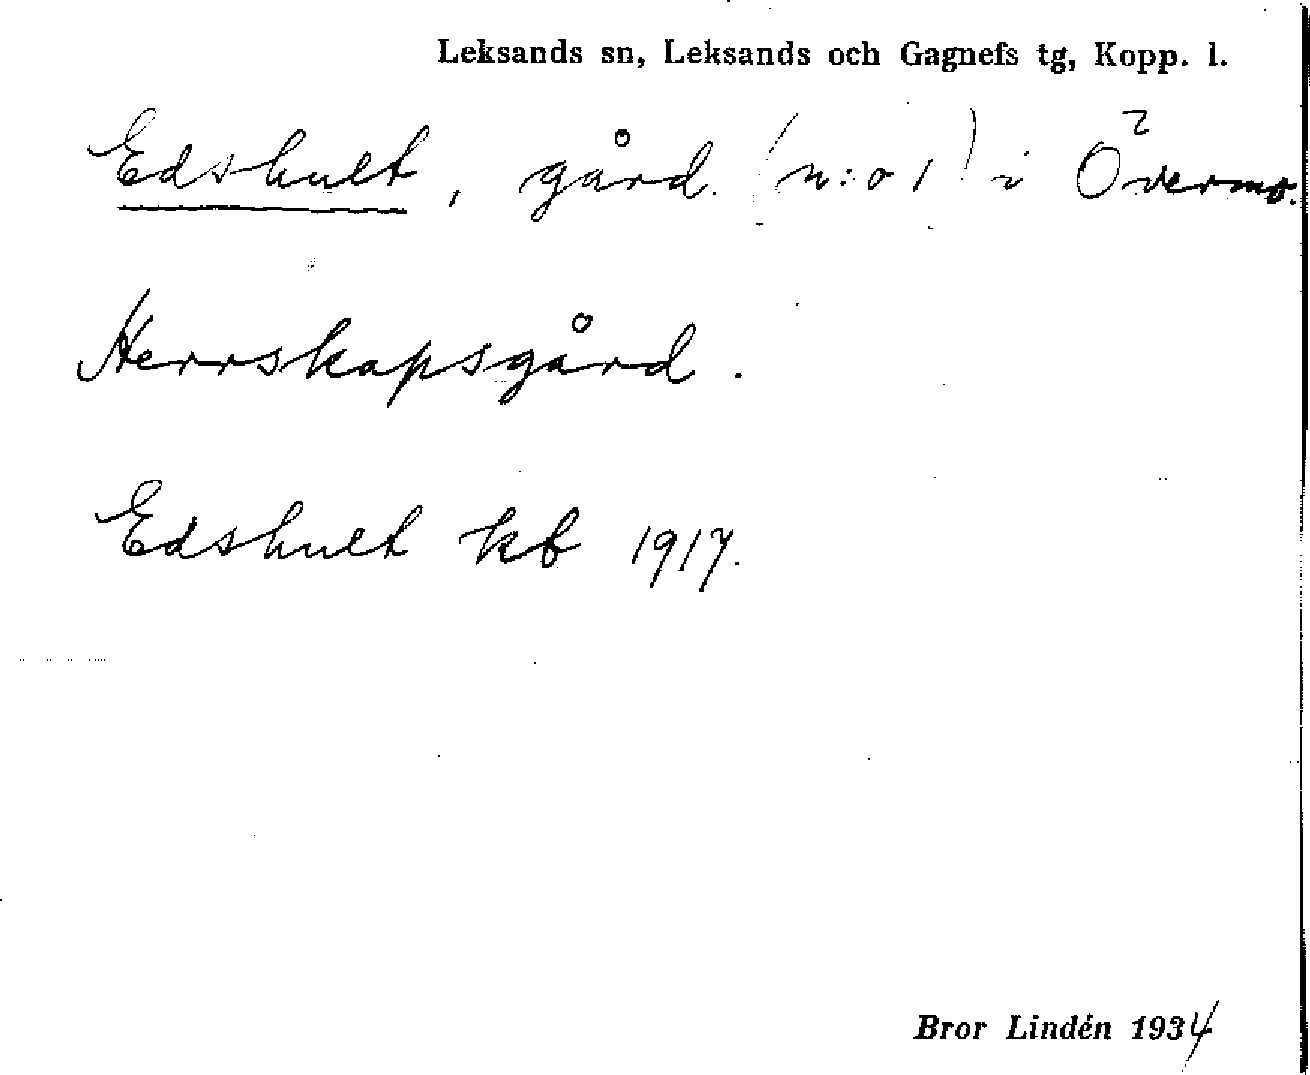 Leksands sn, Leksands och Gagnefs tg, Kopp. l.
Edshult, gård (n:o 1) i Övermo.
Herrskapsgård.
Edshult kb 1917.
Bror Lindén 1934